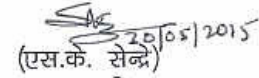 20/05/2015
(एस.के. सेन्द्रे)